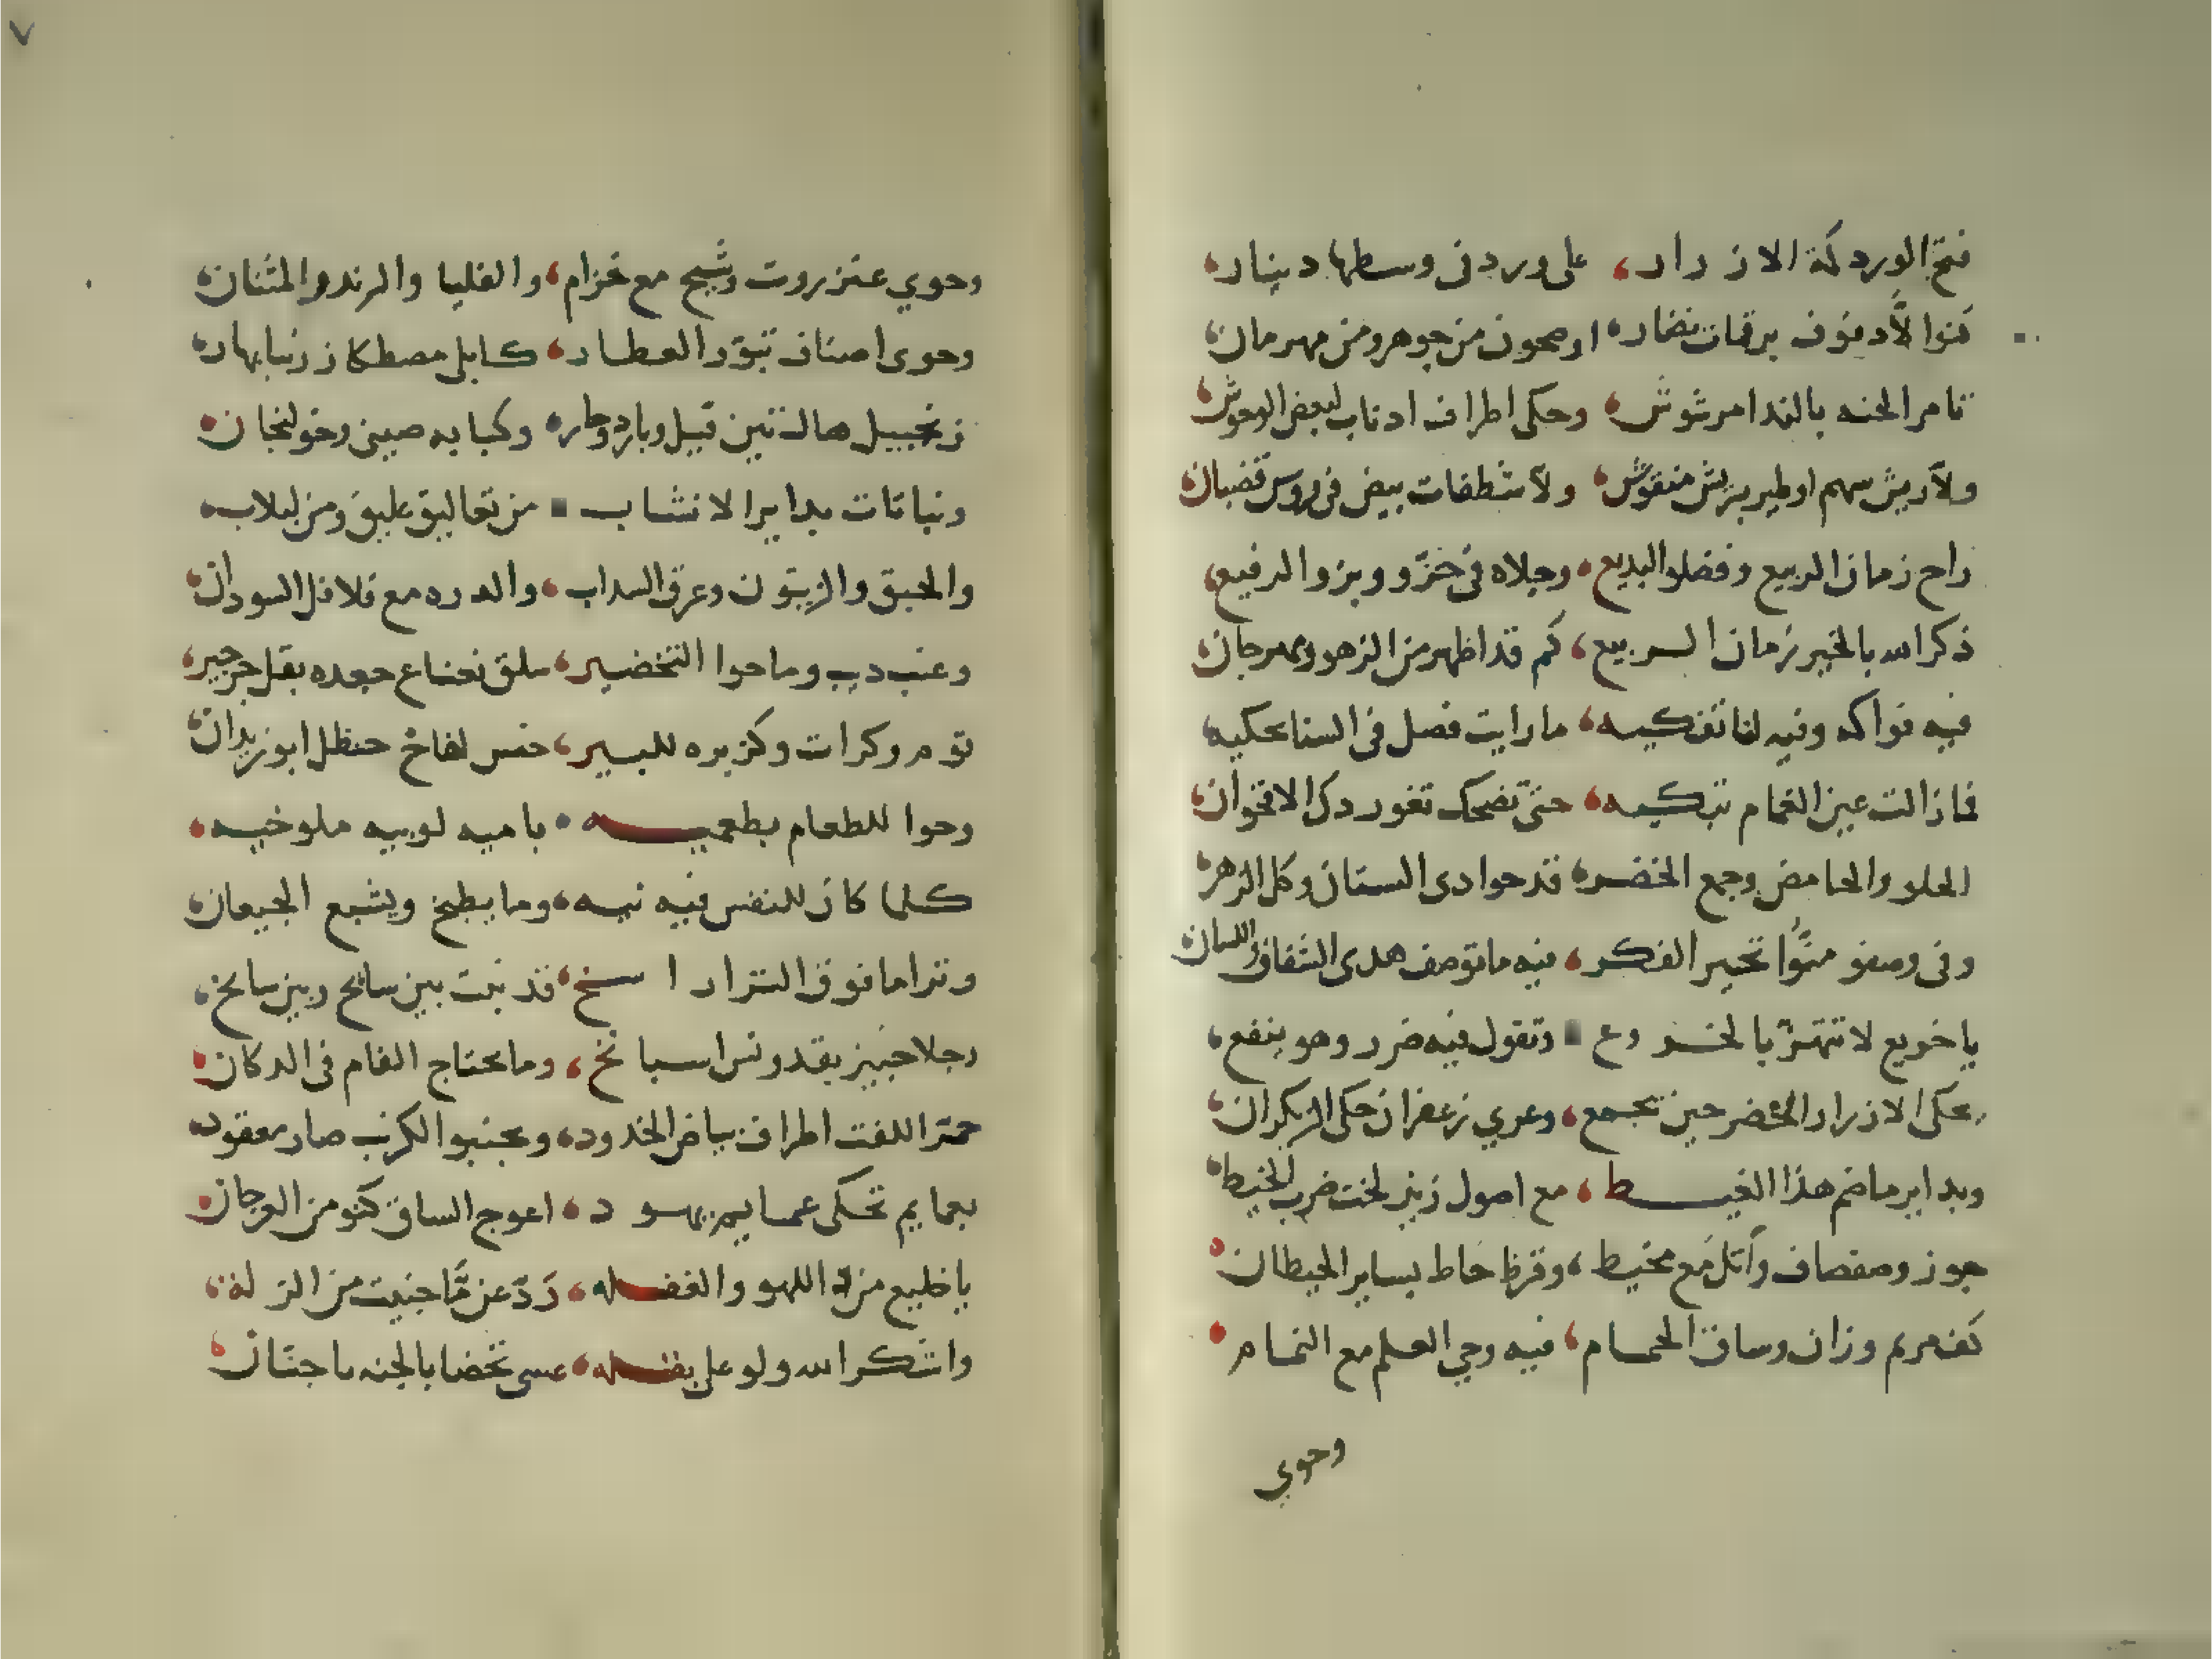 فتح الورد كمة الازرار، على وردن وسطها دينار،
كنوا لأدفوف برقات نضار، اوصحون من جوهر ومن مهرمان،
تامر الحنه بالندا مرشوش، وحكى اطراف ادناب لبعض الوحوش،
ولاريش سهم اوطير بريش منقوش، ولا شطفات بيض فى روس قضبان
راح زمان الربيع وفضلو البديع، وجلاه فى خزو وبزو الرفيع،
ذكر الله بالخير زمان الربيع، كم قد اظهر من الزهور مهرجان
فيه فواكه وفيه لنا تفكيه، ما رايت فصل فى السنا يحكيه،
فما زالت عين الغمام تبكيه، حتى تضحك تغور دك الاقحوان،
الحلو والحامض وجمع الخضره، قد حوا دى البستان وكل الزهر،
وفى وصفو منوا تحير الفكر، فيه ما توصف هدى الشفاف واللسان
يا خويع لا تتهتز بالخروع وتقول فيه ضرر وهو ينفع،
يحكى الازرار الخضر حين يجمع، وعروي زعفران حكى الزيكران،
وبداير ماضم هذا الغيط، مع اصول زنزلخت ضرب الخيط،
جوز وصفصاف وأتل مع مخيط، وقرظ حاط بساير الحيطان
كف مريم وزان وساق الحمام، فيه وحي العلم مع النمام،
وحوي
٧
وحوي عنزروت وشيح مع خزام، والغليا والرند والمثنان،
وحوى اصناف تبور العطار، كابلى مصطكا زرنبا بهار،
زنجبيل هال تين قبيل وبارد وحار، وكبابه صينى وخولنجان
ونباتات بداير الانشاب من تعاليق عليق ومن لبلاب،
والحبق والزيتون وعرق السداب، والدره مع فلافل السودان،
وعنب ديب وما حوا التخضير، سلق نعناع جعده بقل جرجير،
توم وكرات وكزبره للبسير، خس لفاح حنظل ابوزيدان
وحوا للطعام بطعميه، باميه لوبيه ملوخيه،
كلما كان للنفس فيه نيه، وما يطبخ ويشبع الجيعان،
وترا ما فوق الترار اسخ، قد نبت بين سايح وبين سايخ،
رجلا خبيز بقدونس اسباخ، وما يحتاج الفام فى الدكان
حمترا للفت اطراف بياض الخدود، وبجنبو الكرنب صار معقود،
بعمايم تحكى عمايم يهود، اعوج الساق كنو من العرجان
يا خليع من دا اللهو والغفله، رَدّ عن ما جنيت من الزله،
واشكر الله ولو على بقله، عسى تحضا بالجنه يا جنان